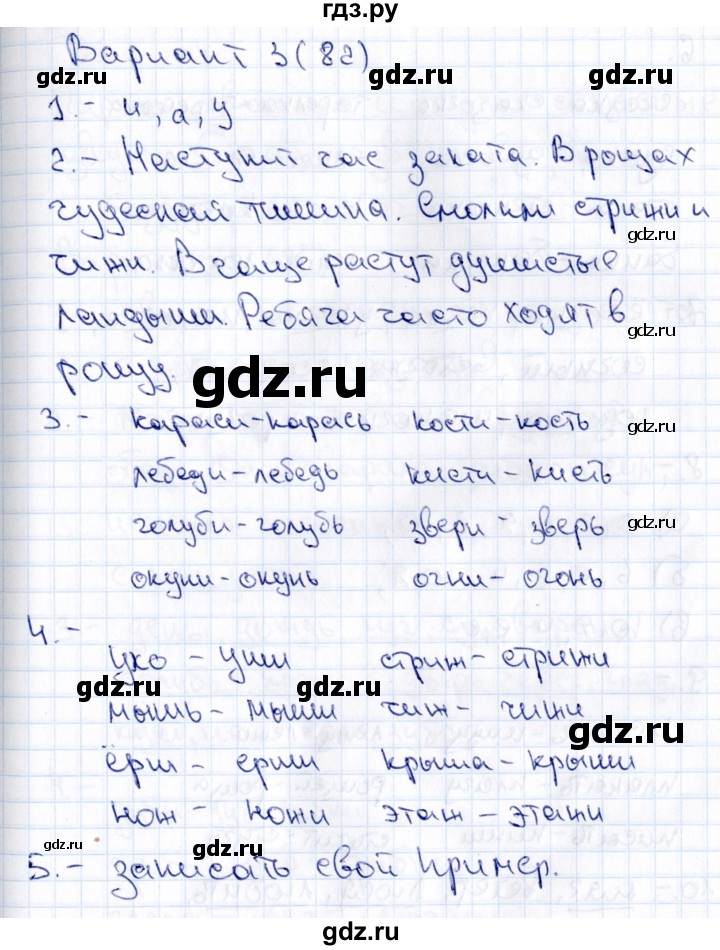 гдз.ру
Вариант 3(82)
1.- и, а, у
2.- Наступил час заката. В рощах
чудесная тишина. Смолкли стрижи и
чижи. В чаще растут душистые
ландыши. Ребята часто ходят в
рощу.
3.- караси-карась кости-кость
лебеди-лебедь кисти-кисть
голуби-голубь звери-зверь
окуни-окунь огни-огонь
4.-
ухо - уши стриж-стрижи
мышь-мыши чиж-чижи
ёрш-ерши крыша-крыши
нож-ножи этаж-этажи
5.- записать свой пример.
gdz.ru
gdz.ru
gdz.ru
gdz.ru
gdz.ru
gdz.ru
gdz.ru
gdz.ru
gdz.ru
gdz.ru
gdz.ru
gdz.ru
gdz.ru
gdz.ru